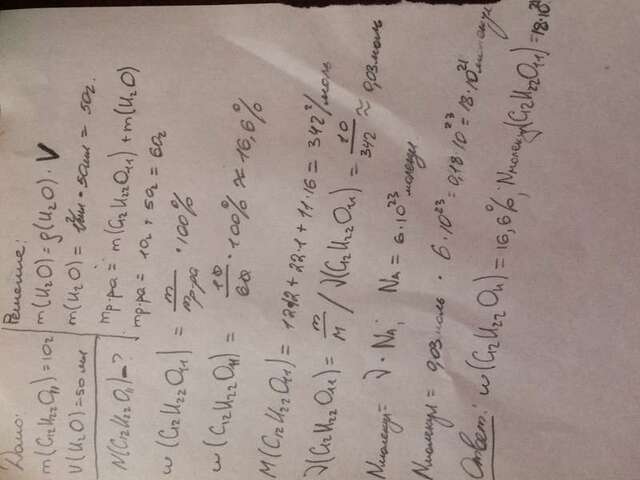 Дано:
m(C12H22O11)=10г
V(H2O)=50 мл
N(C12H22O11)-?
Решение:
m(H2O)=ρ(H2O)·V
m(H2O)= 1г/мл·50мл= 50г.
mр-ра= m(C12H22O11)+m(H2O)
mр-ра= 10г+50г=60г
ω(C12H22O11) = m/mр-ра ·100%
ω(C12H22O11)= 10/60 ·100%≈16,6%
M(C12H22O11)= 12·12+22·1+11·16=342г/моль
ν(C12H22O11)= m/M / ν(C12H22O11)= 10/342 ≈ 0,03моль
Nмолекул= ν·NA; NA=6·10²³молекул
Nмолекул= 0,03моль · 6·10²³=0,18·10²³=18·10²¹молекул
Ответ: ω(C12H22O11)=16,6%; Nмолекул(C12H22O11)=18·10²¹